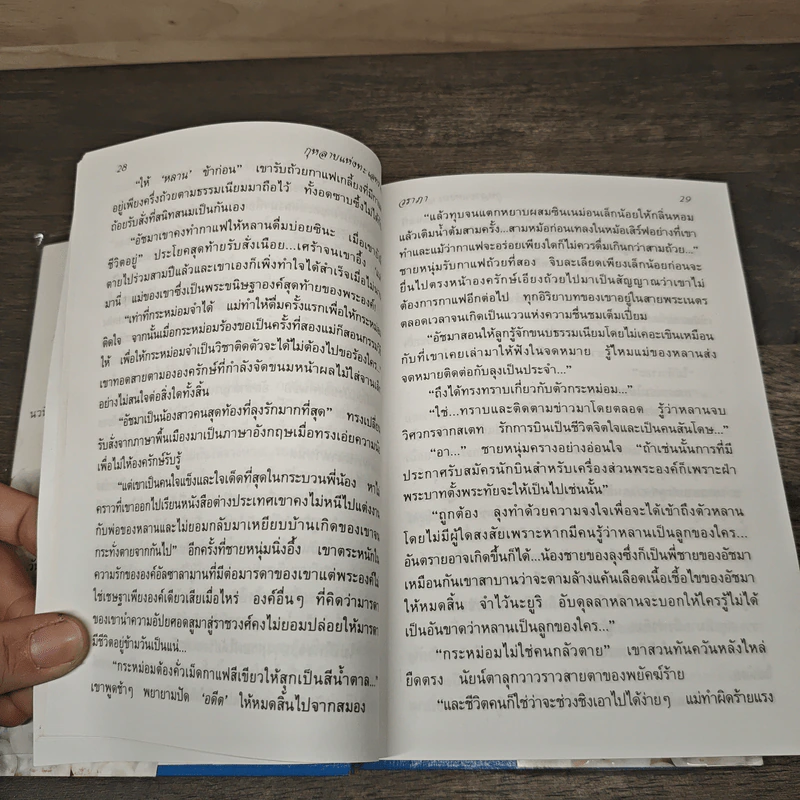 28
กุหลาบแห่งทะเล
"ให้ 'หลาน' ข้าก่อน" เขารับถ้วยกาแฟเกลี้ยงที่มี
อยู่เพียงครึ่งถ้วยตามธรรมเนียมมาถือไว้ ทั้งอดซาบซึ้งไม่ได้
ถ้อยรับสั่งที่สนิทสนมเป็นกันเอง
"อัชมาเขาคงทำกาแฟให้หลานดื่มบ่อยซินะ เมื่อเขา
ชีวิตอยู่" ประโยคสุดท้ายรับสั่งเนือย...เศร้าจนเขาอึ้ง
ตายไปร่วมสามปีแล้วและเขาเองก็เพิ่งทำใจได้สำเร็จเมื่อไม่
มานี่ แม่ของเขาซึ่งเป็นพระขนิษฐาองค์สุดท้ายของพระองค์
"เท่าที่กระหม่อมจำได้ แม่ทำให้ดื่มครั้งแรกเพื่อให้กระหม่อม
ติดใจ จากนั้นเมื่อกระหม่อมร้องขอเป็นครั้งที่สองแม่ก็สอน
ให้ เพื่อให้กระหม่อมจำเป็นวิชาติดตัวจะได้ไม่ต้องไปขอร้องใคร
เขาทอดสายตามององครักษ์ที่กำลังจัดขนมหน้าผลไม้ใส่จาน
อย่างไม่สนใจต่อสิ่งใดทั้งสิ้น
"อัชมาเป็นน้องสาวคนสุดท้องที่ลุงรักมากที่สุด" ทรงเปลี่ยน
รับสั่งจากภาษาพื้นเมืองมาเป็นภาษาอังกฤษเมื่อทรงเอ่ยความ
เพื่อไม่ให้องครักษ์รับรู้
"แต่เขาเป็นคนใจแข็งและใจเด็ดที่สุดในกระบวนพี่น้อง หา
คราวที่เขาออกไปเรียนหนังสือต่างประเทศเขาคงไม่หนีไปแต่งงาน
กับพ่อของหลานและไม่ยอมกลับมาเหยียบบ้านเกิดของเขา
กระทั่งตายจากกันไป" อีกครั้งที่ชายหนุ่มนิ่งอึ้ง เขาตระหนัก
ความรักขององค์อัลซาลามานที่มีต่อมารดาของเขาแต่พระองค์
ใช่เชษฐาเพียงองค์เดียวเสียเมื่อไหร่ องค์อื่นๆ ที่คิดว่ามารดา
ของเขานำความอัปยศอดสูมาสู่ราชวงศ์คงไม่ยอมปล่อยให้มารดา
มีชีวิตอยู่ข้ามวันเป็นแน่...
"กระหม่อมต้องคั่วเม็ดกาแฟสีเขียวให้สุกเป็นสีน้ำตาล..."
เขาพูดช้าๆ พยายามปัด 'อดีต' ให้หมดสิ้นไปจากสมอง
วราภา
29
"แล้วทุบจนแตกหยาบผสมซินเนม่อนเล็กน้อยให้กลิ่นหอม
แล้วเติมน้ำต้มสามครั้ง...สามหม้อก่อนเทลงในหม้อเสิร์ฟอย่างที่เขา
ทำและแม้ว่ากาแฟจะอร่อยเพียงใดก็ไม่ควรดื่มเกินกว่าสามถ้วย..."
ชายหนุ่มรับกาแฟถ้วยที่สอง จิบละเลียดเพียงเล็กน้อยก่อนจะ
ยื่นไปตรงหน้าองครักษ์เอียงถ้วยไปมาเป็นสัญญาณว่าเขาไม่
ต้องการกาแฟอีกต่อไป ทุกอิริยาบถของเขาอยู่ในสายพระเนตร
ตลอดเวลาจนเกิดเป็นแววแห่งความชื่นชมเต็มเปี่ยม
"อัชมาสอนให้ลูกรู้จักขนบธรรมเนียมโดยไม่เคอะเขินเหมือน
กับที่เขาเคยเล่ามาให้ฟังในจดหมาย รู้ไหมแม่ของหลานส่ง
จดหมายติดต่อกับลุงเป็นประจำ..."
"ถึงได้ทรงทราบเกี่ยวกับตัวกระหม่อม..."
"ใช่...ทราบและติดตามข่าวมาโดยตลอด รู้ว่าหลานจบ
วิศวกรจากสเตท รักการบินเป็นชีวิตจิตใจและเป็นคนสันโดษ..."
"อา..." ชายหนุ่มครางอย่างอ่อนใจ "ถ้าเช่นนั้นการที่มี
ประกาศรับสมัครนักบินสำหรับเครื่องส่วนพระองค์ก็เพราะฝ่า
พระบาทตั้งพระทัยจะให้เป็นไปเช่นนั้น"
"ถูกต้อง ลุงทำด้วยความจงใจเพื่อจะได้เข้าถึงตัวหลาน
โดยไม่มีผู้ใดสงสัยเพราะหากมีคนรู้ว่าหลานเป็นลูกของใคร...
อันตรายอาจเกิดขึ้นก็ได้...น้องชายของลุงซึ่งก็เป็นพี่ชายของอัชมา
เหมือนกันเขาสาบานว่าจะตามล้างแค้นเลือดเนื้อเชื้อไขของอัชมา
ให้หมดสิ้น จำไว้นะยูริ อับดุลลาหลานจะบอกให้ใครรู้ไม่ได้
เป็นอันขาดว่าหลานเป็นลูกของใคร..."
"กระหม่อมไม่ใช่คนกลัวตาย" เขาสวนทันควันหลังไหล่
ยืดตรง นัยน์ตาลุกวาวราวสายตาของพยัคฆ์ร้าย
"และชีวิตคนก็ใช่ว่าจะช่วงชิงเอาไปได้ง่ายๆ แม่ทำผิดร้ายแรง